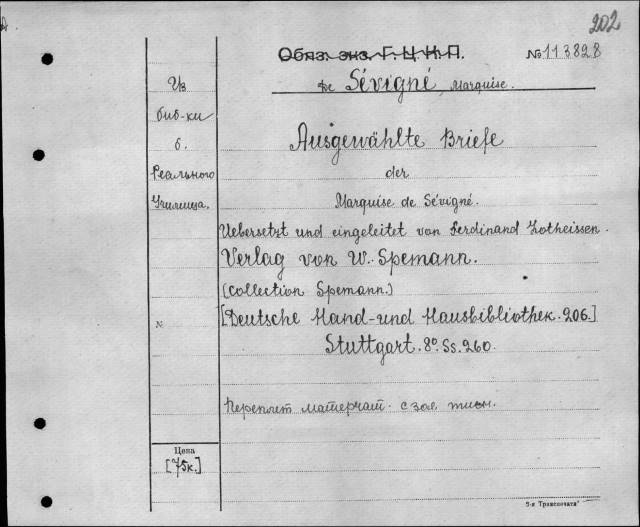 202
Обяз. экз. Г.Ц.К.П.
№ 113828
de Sévigné, Marquise.
Из
биб-ки
б.
Реального
Училища.
Ausgewählte Briefe
der
Marquise de Sévigné.
Uebersetzt und eingeleitet von Ferdinand Lotheissen.
Verlag von W. Spemann.
(Collection Spemann.)
[Deutsche Hand- und Hausbibliothek. 206.]
№
Stuttgart. 8º. Ss. 260.
Переплет матерчат. с зол. тисн.
Цена
[75к.]
5-я "Транспечати"